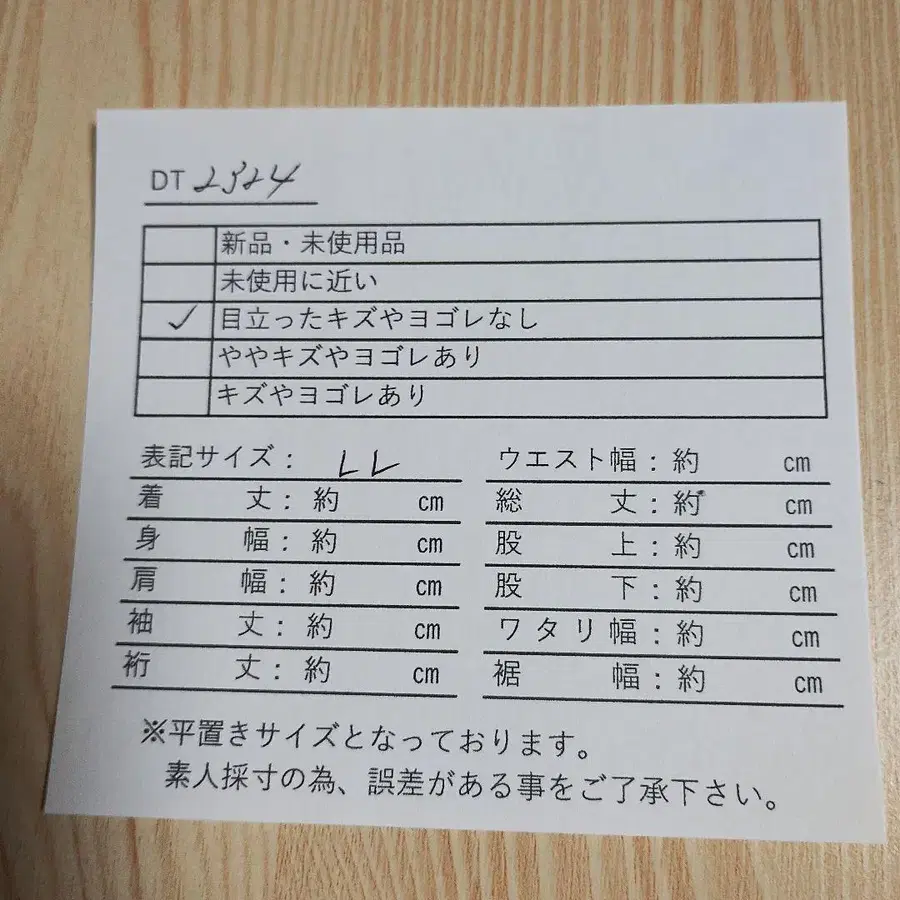 DT 2324
新品・未使用品
未使用に近い
✓ 目立ったキズやヨゴレなし
ややキズやヨゴレあり
キズやヨゴレあり
表記サイズ： LL
着丈：約 cm
身幅：約 cm
肩幅：約 cm
袖丈：約 cm
裄丈：約 cm
ウエスト幅：約 cm
総丈：約 cm
股上：約 cm
股下：約 cm
ワタリ幅：約 cm
裾幅：約 cm
※平置きサイズとなっております。
素人採寸の為、誤差がある事をご了承下さい。